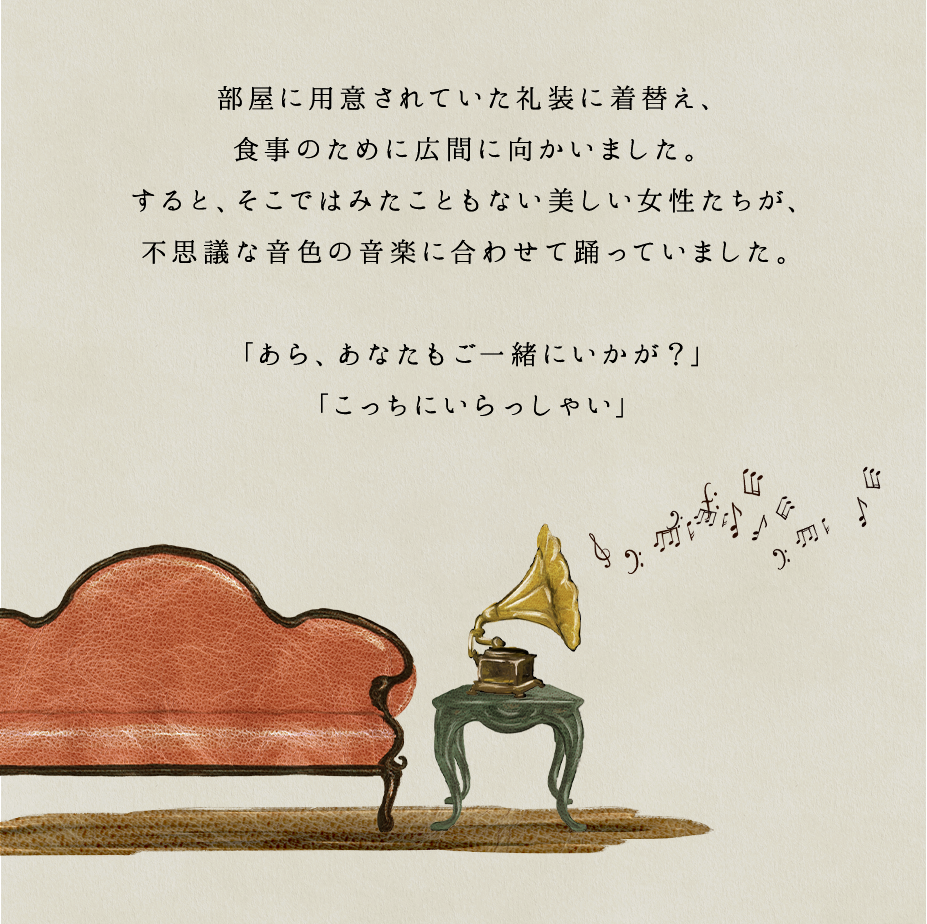 部屋に用意されていた礼装に着替え、
食事のために広間に向かいました。
すると、そこではみたこともない美しい女性たちが、
不思議な音色の音楽に合わせて踊っていました。
「あら、あなたもご一緒にいかが？」
「こっちにいらっしゃい」